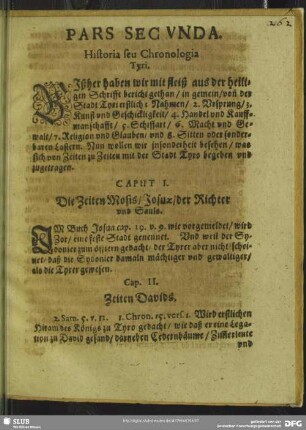 262
PARS SECVNDA.
Historia seu Chronologia
Tyri.
BIßher haben wir mit fleiß aus der heili-
gen Schrifft bericht gethan / in gemein / von der
Stadt Tyri erstlich 1 Nahmen / 2. Vrsprung / 3.
Kunst vnd Geschickligkeit / 4. Handel vnd Kauff-
manschafft / 5. Schiffart / 6. Macht vnd Ge-
walt / 7. Religion vnd Glauben / vnd 8. Sitten oder sonder-
baren Lastern. Nun wollen wir insonderheit besehen / was
sich von Zeiten zu Zeiten mit der Stadt Tyro begeben vnd
zugetragen.
CAPUT I.
Die Zeiten Mosis, Josuæ / der Richter
vnd Sauls.
IM Buch Josua cap. 19. v. 9. wie vorgemeldet / wird
Zor / eine feste Stadt genennet. Vnd weil der Sy-
donier zum öfftern gedacht / der Tyrer aber nicht / schei-
net / daß die Sydonier damaln mächtiger vnd gewaltiger /
als die Tyrer gewesen.
Cap. II.
Zeiten Davids.
2. Sam. 5. v. 11. 1. Chron. 15. vers. 1. Wird erstlichen
Hiram des Königs zu Tyro gedacht / wie daß er eine Lega-
tion zu David gesand / darneben Cedernbäume / Zimmerleute
vnd
SLUB
Wir führen Wissen.
gefördert von der
Deutschen Forschungsgemeinschaft